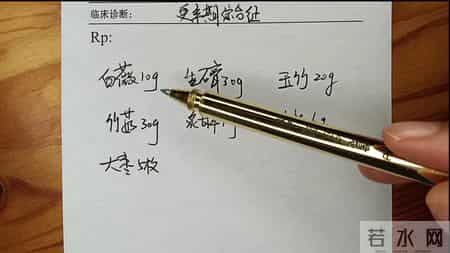 临床诊断: 更年期综合征
Rp:
白薇10g 生石膏30g 玉竹20g
竹茹30g 炙甘
大枣5枚
若水网